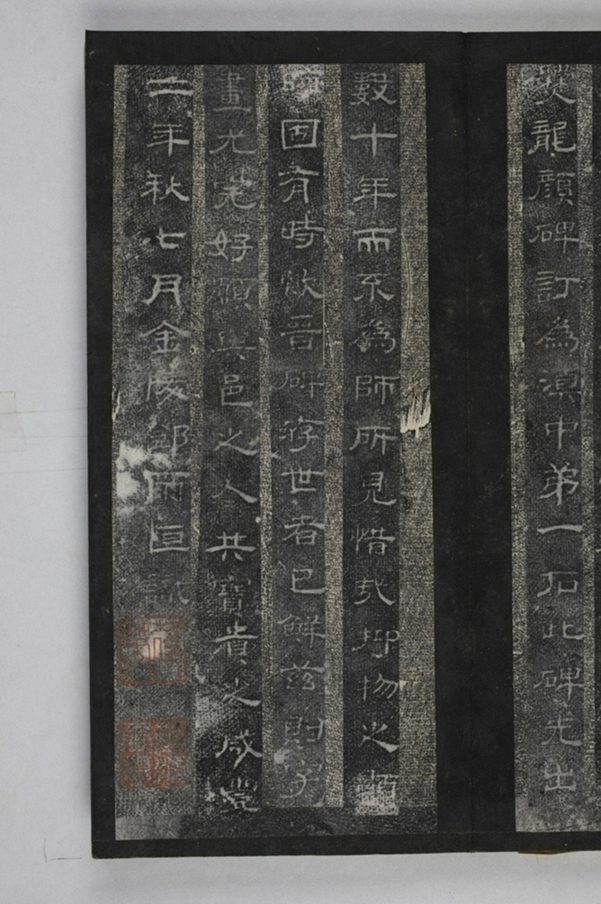 爨龍顏碑訂為滇中弟一石此碑先出
數十年而不為師所見惜哉抑物之顯
晦固有時歟晉碑存世者已鮮茲則字
畫尤完好願與邑之人共寶貴之咸豐
二年秋七月金陵鄧爾恒識